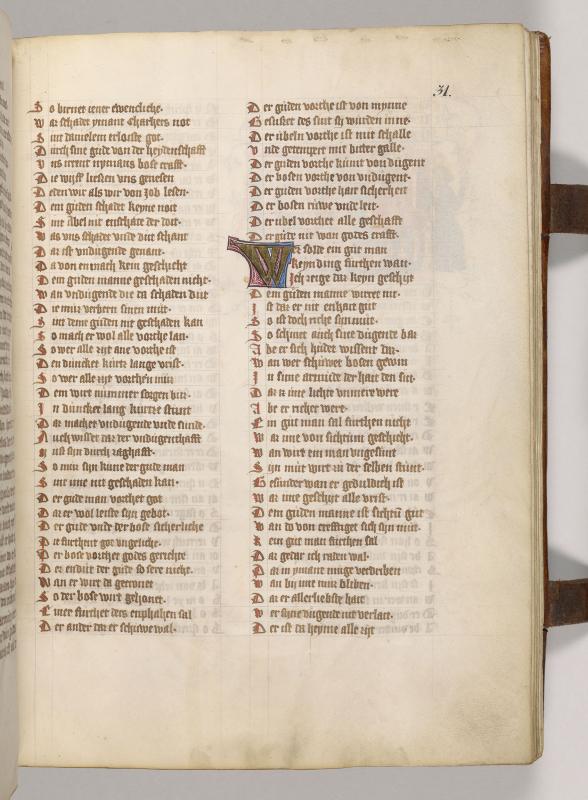 31.
So birnet iener ewencliche.
War schadet ymant charkers not
Sint danielem erloiste got.
Durch sine gude von der heydenschafft
Uns irrent nymans bose crafft.
Die wysse liessen uns genesen
Deden wir als wir von Job lesen.
Dem guden schadet keyne noit
Sint Abel nit enschate der doit.
Was uns schadet und dut schant
Dar ist undugende genant.
Da von ennach kein geschicht
Dem guden manne geschaden nicht.
Wan undugende die da schaden dut
Die mir verbern sinen mut.
Sint dem guden nit geschaden kan
So mach er wol alle vorthe lan.
So wer alle zijt ane vorthe ist
Den duncket kurtz lange vrist.
So wer alle zijt vorchten mus
Dem wirt nummer sorgen bus.
In duncket lang kurtze stunt
Dar machet undugende unde sunde.
Auch wisset daz der undugenthafft
nit sin durch zaghafft
So min syn kune der gude man
Sint ime nit geschaden kan.
Der gude man vorchtet got
Dar er wol leiste syn gebot.
Der gude unde der bose sicherliche
Die furchtent got ungeliche.
Der bose vorchtet godes gerichte
Der enduet der gude so sere nicht.
Wan er wirt da gecronet
So der bose wirt gehonet.
Einer furchtet ders enphahen sal
Der ander daz er schuwe wal.
Der guden vorchte ist von mynne
Gesuset des sint sy wurden inne.
Der ubeln vorchte ist mit schalle
Unde getempert mit bitter galle.
Der guden vorchte kumt von dugent
Der bosen vorchte von undugent.
Der guden vorchte hait sicherheit
Der bosen ruwe unde leit.
Der ubel vorchtet alle geschafft
Der gude nit wan godes crafft.
Wer solde ein gut man
keyn ding furthen wan.
Ich zeige daz keyn geschijt
Dem guden manne wirret nit.
Ist daz er nit enhait gut
So ist doch riche syn mut.
So schinet auch sine dugende baz
Abe er sich hudet wissent daz.
Wan wer schuwet bosen gewin
In sime armude der hait den sin.
Daz er ime lichte ummere were
Abe er richer were.
Ein gut man sal furthen nicht
War ime von sichtum geschicht.
Wan wirt ein man ungesunt
Syn mut wirt zu der selben stunt.
Gesunder wan er geduldich ist
War ime geschijt alle vrist.
Dem guden manne ist sichtum gut
Wan do von creffriget sich syn mut.
Kein gut man furthen sal
Daz gedar ich raden wal.
Daz in ymant muge verderben
Wan by ime mus bliben.
Daz er allerliebste hait
Wer syne dugende nit verlait.
Der ist da heyme alle zijt